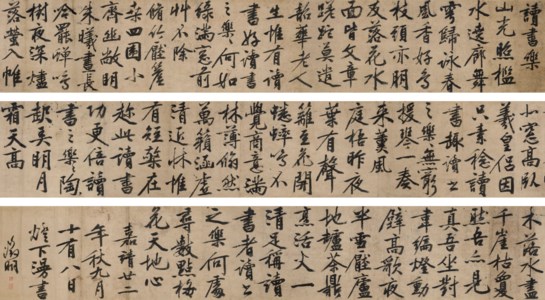 讀書樂
山光照檻
水遶廊舞
雩歸詠春
風香好鳥
枝頭亦朋
友落花水
面皆文章
蹉跎莫遣
韶華老人
生惟有讀
書好讀書
之樂何如
綠滿窗前
草不除
脩竹壓簷
桑四圍小
齋幽敞明
朱曦晝長
吟罷蟬鳴
樹夜深燼
落螢入帷
北窗高臥
羲皇侶因
只素稔讀
書趣讀書
之樂無窮
援琴一奏
來薰風
庭梧昨夜
葉有聲
籬豆花開
蟋蟀鳴不
覺商意滿
林薄翛然
萬籟涵虛
清近床惟
有短檠在
趁此讀書
功更倍讀
書之樂陶
起弄明月
霜天高
木落水盡
千崖枯夐
然吾亦見
真吾坐對
韋編燈動
壁高歌夜
半雪壓廬
地爐茶鼎
烹活火一
清足稱讀
書者讀書
之樂何處
尋數點梅
花天地心
嘉靖廿二
年秋九月
十有八日
燈下漫書
徵明